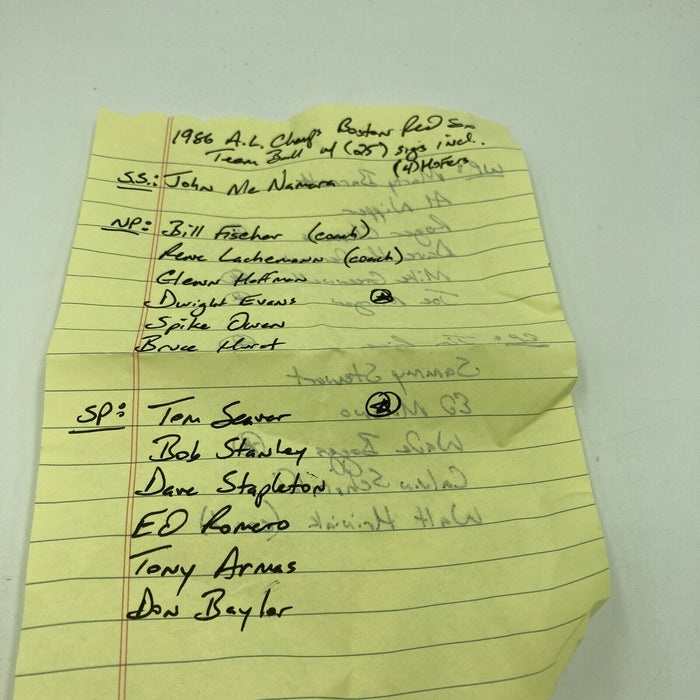 1986 A.L. Champs Boston Red Sox
Team Ball w/ (25) sigs incl.
(4) HOFers
S.S.: John Mc Namara
NP: Bill Fischer (coach)
Rene Lachemann (coach)
Glenn Hoffman
Dwight Evans
Spike Owen
Bruce Hurst
SP: Tom Seaver
Bob Stanley
Dave Stapleton
ED Romero
Tony Armas
Don Baylor